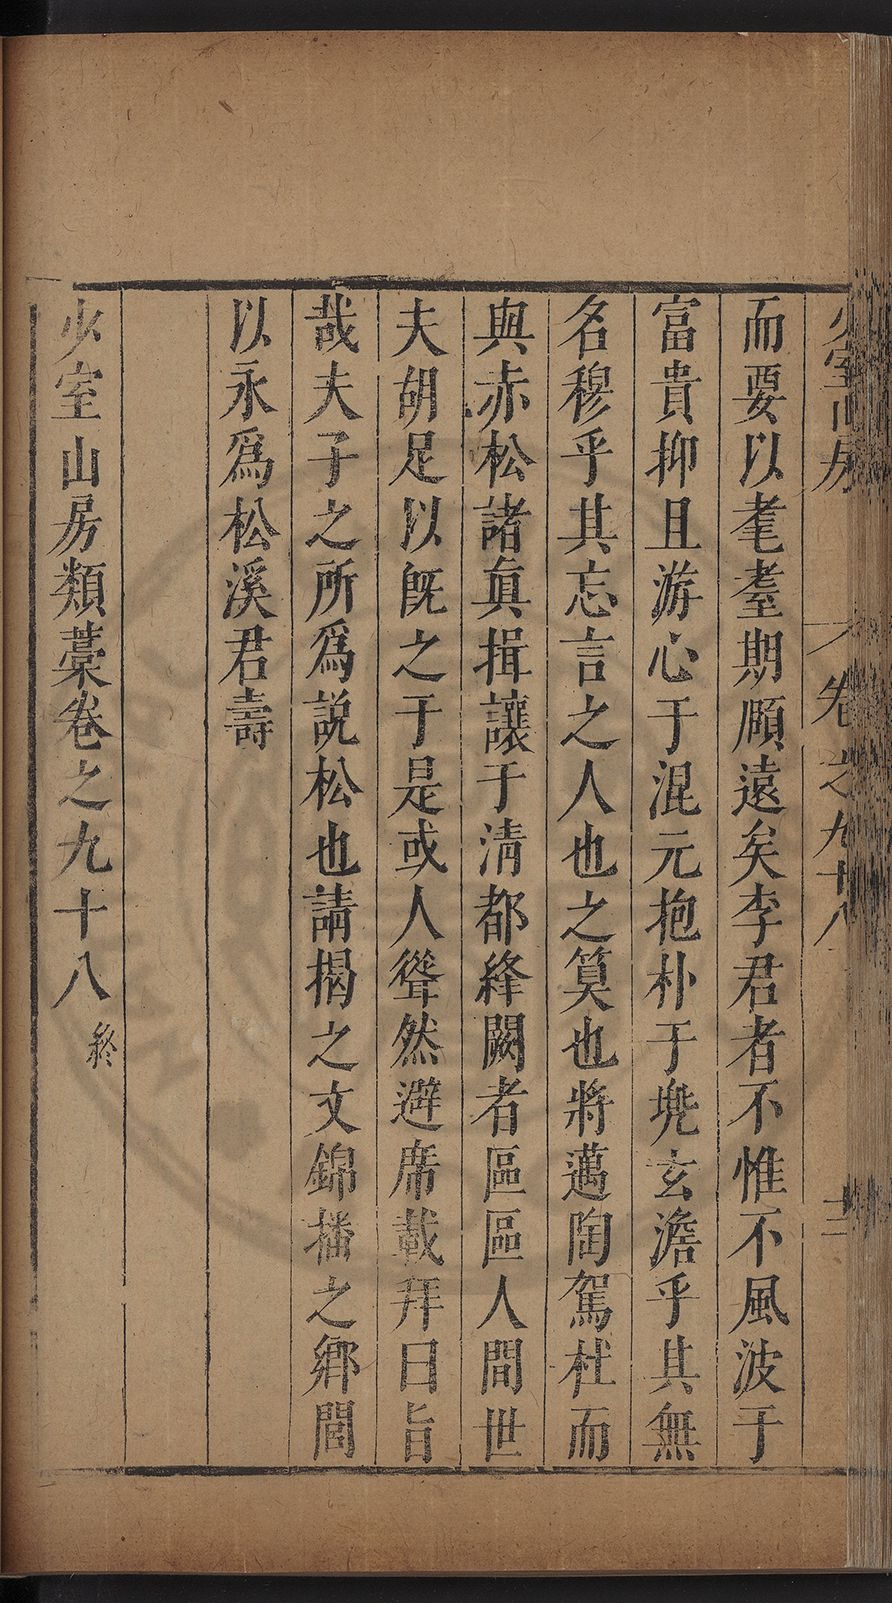 少室山房 卷之九十八 十三
而要以耄耋期頤遠矣李君者不惟不風波于
富貴抑且游心于混元抱朴于堯玄澹乎其無
名穆乎其忘言之人也之筭也將邁陶駕杜而
與赤松諸眞揖讓于清都絳闕者區區人間世
夫胡足以旣之于是或人聳然避席載拜曰旨
哉夫子之所爲說松也請揭之文錦播之鄉閭
以永爲松溪君壽
少室山房類藁卷之九十八 終